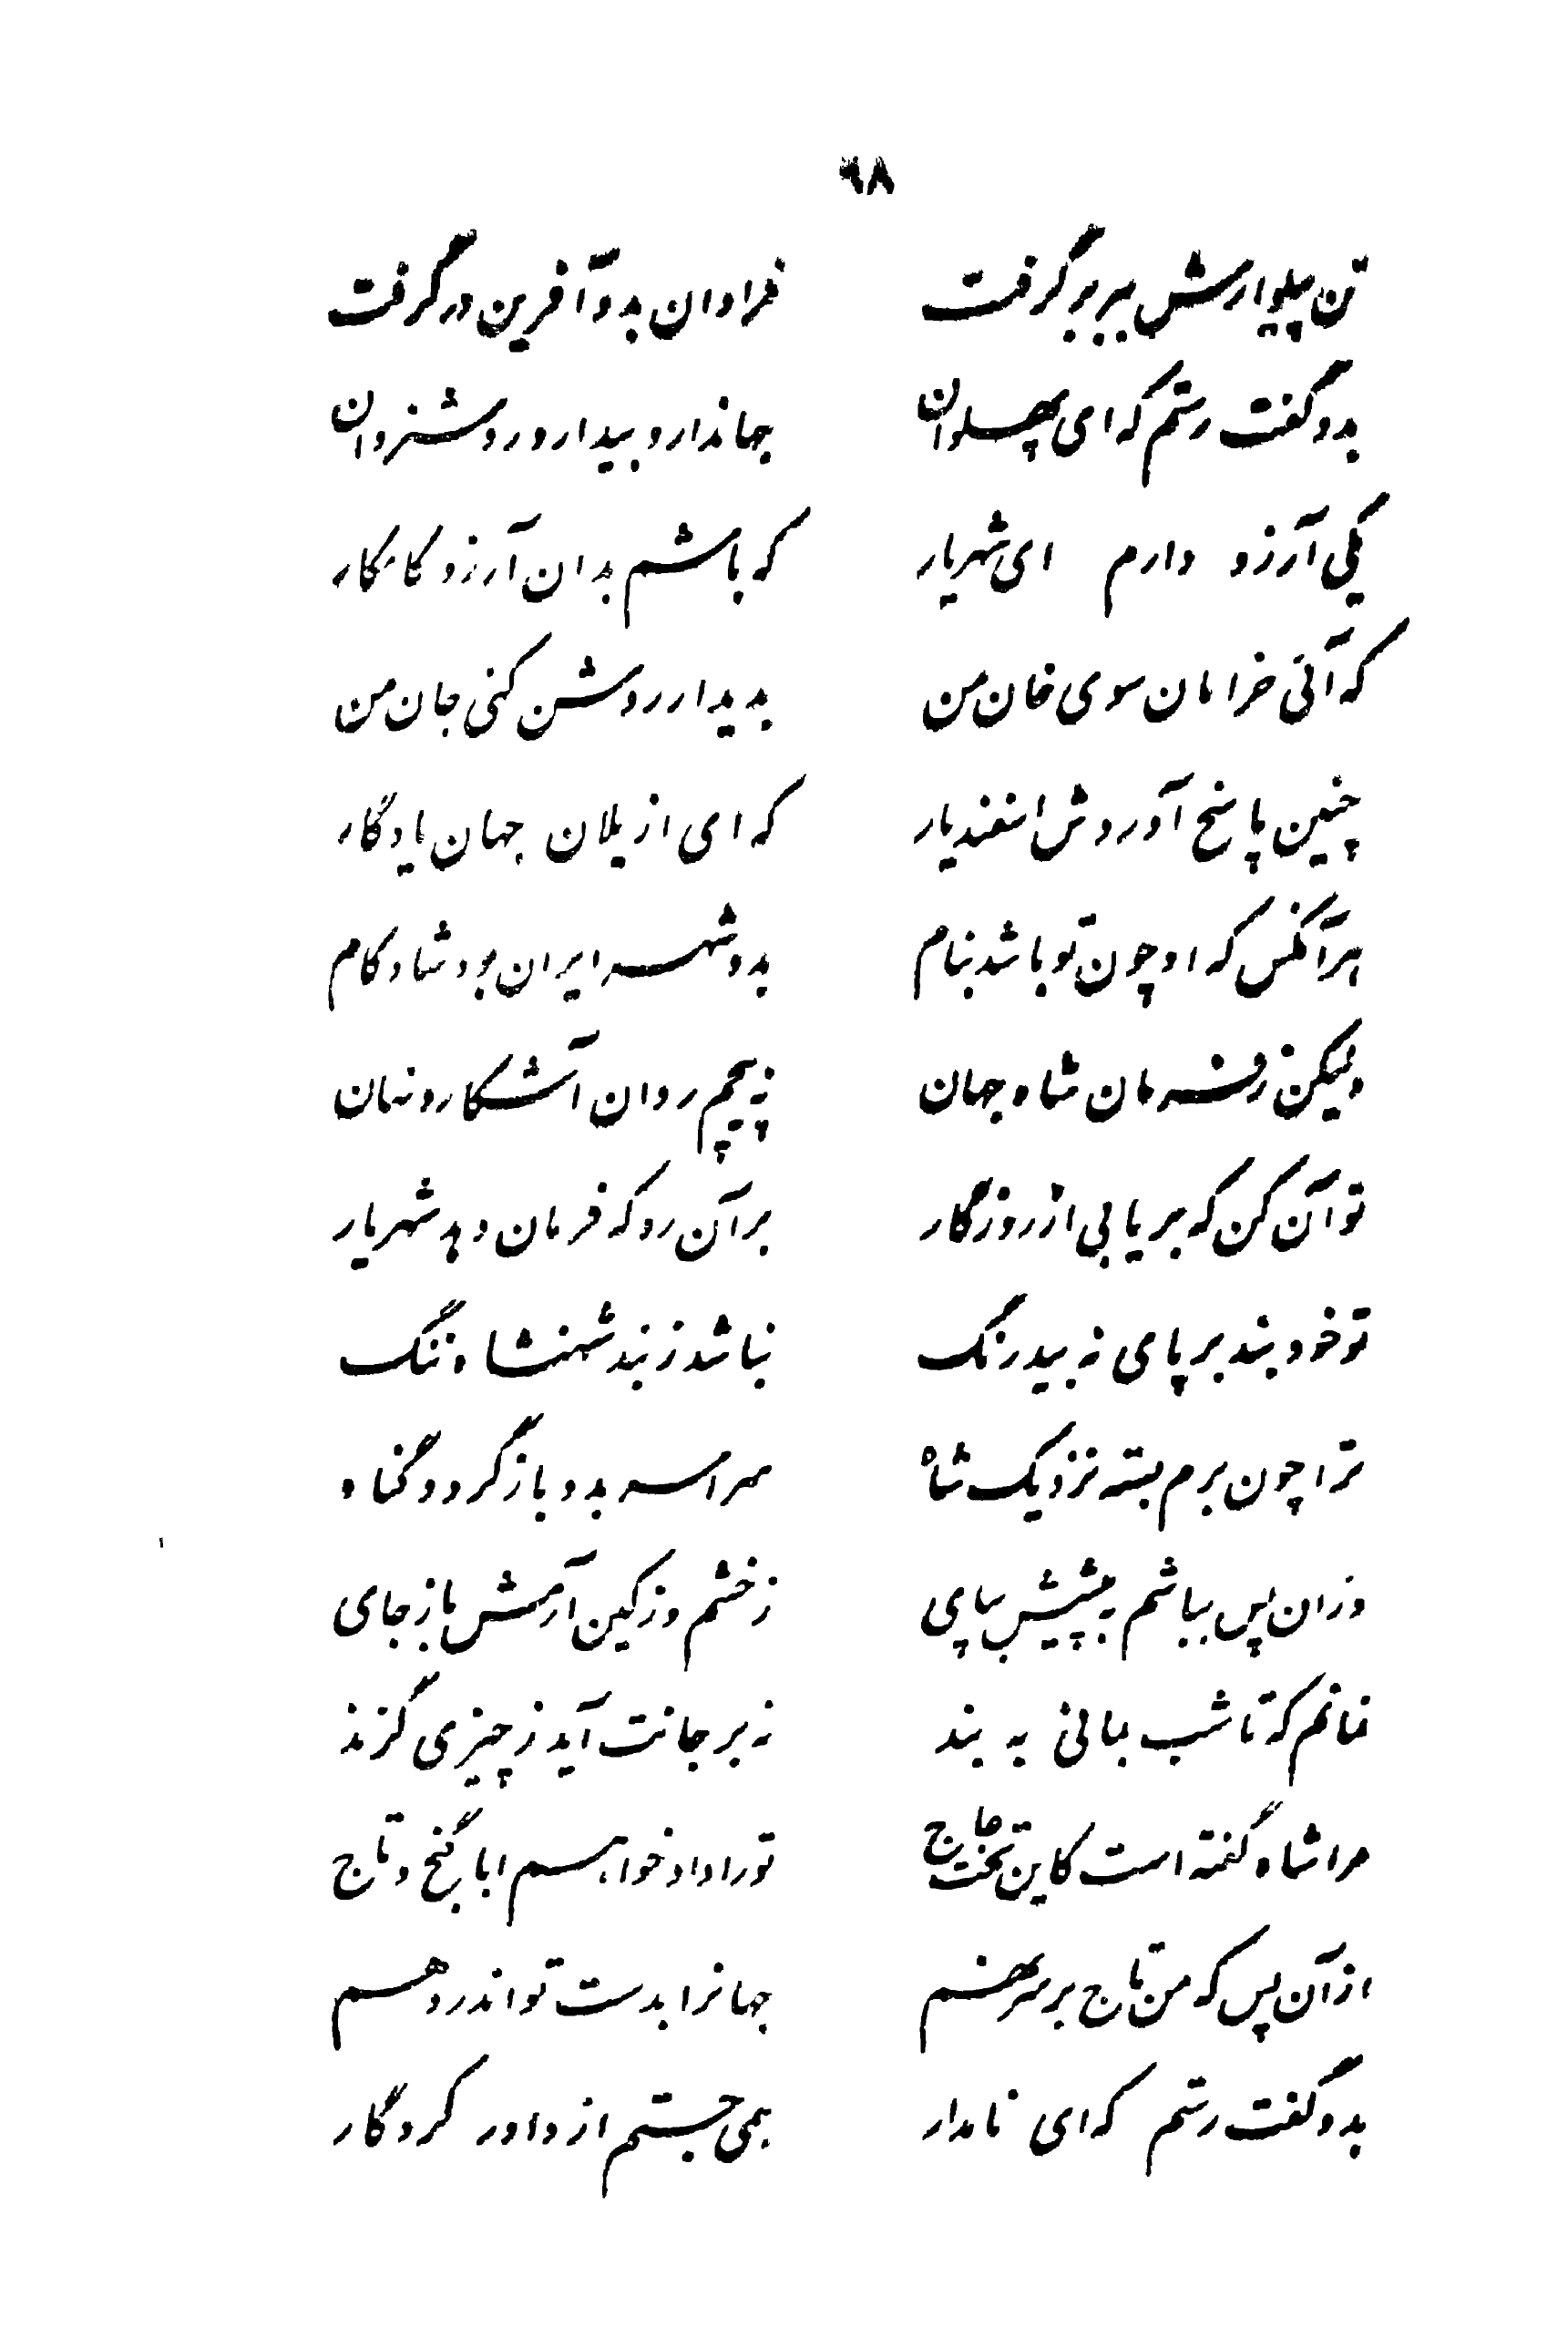 ۹۸
تن پیلوارش ببر بر گرفت فراوان بدو آفرین در گرفت
بدو گفت رستم که ای پهلوان جهاندار و بیدار و روشنروان
یکی آرزو دارم ای شهریار که باشم بدان آرزو کامکار
که آئی خرامان سوی خان من بدیدار روشن کنی جان من
چنین پاسخ آوردش اسفندیار که ای از یلان جهان یادگار
هر آنکس که او چون تو باشد بنام بدو شهر ایران بود شادکام
ولیکن ز فرمان شاه جهان نه پیچم روان آشکار و نهان
تو آن کن که بر یابی از روزگار بر آن رو که فرمان دهد شهریار
تو خود بند بر پای نه بیدرنگ نباشد ز بند شهنشاه ننگ
ترا چون برم بسته نزدیک شاه سراسر بدو باز گردد گناه
وزان پس بباشم به پیشش بپای ز خشم و ز کین آرمش باز جای
نمانم که تا شب بمانی به بند نه بر جانت آید ز چیزی گزند
مرا شاه گفته است کاین تخت عاج تو را داد خواهم ابا گنج و تاج
از آن پس که من تاج بر سر نهم جهانرا بدست تو اندر دهم
بدو گفت رستم که ای نامدار همی جستم از داور کردگار